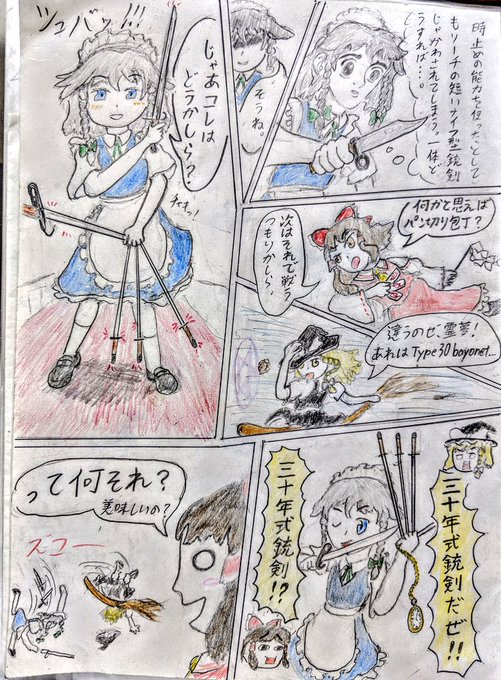 時止めの能力を使ったとして
も
じゃかわされてしまう。一体ど
うすれば…。
そうね。
じゃあコレは
どうかしら？
シュバッ!!!
何かと思えば
パン切り包丁？
次はそれで戦う
つもりかしら。
違うのぜ、霊夢！
あれはType30 bayonet…
三十年式銃剣だぜ!!
三十年式銃剣!?
って何それ？
美味しいの？
ズコー